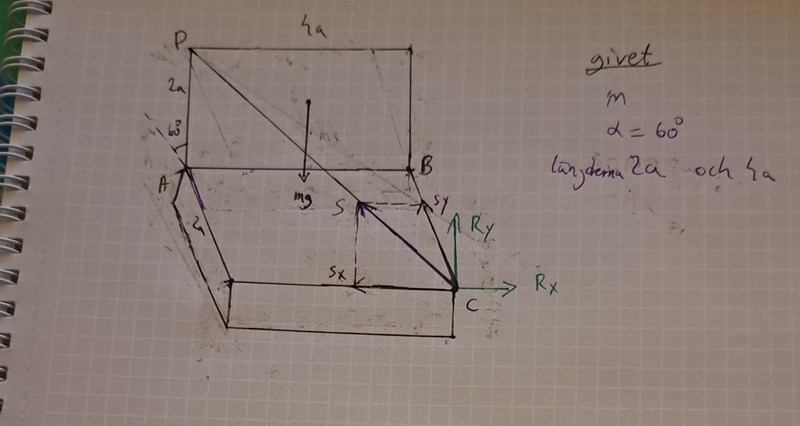 4a
P
givet
2a
m
60°
α = 60°
längderna 2a och 4a
A
B
mg
S
sy
Ry
sx
Rx
C